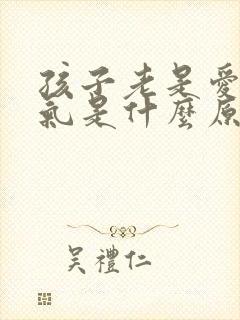 孩子老是愛
氣是什麼原
吳禮仁